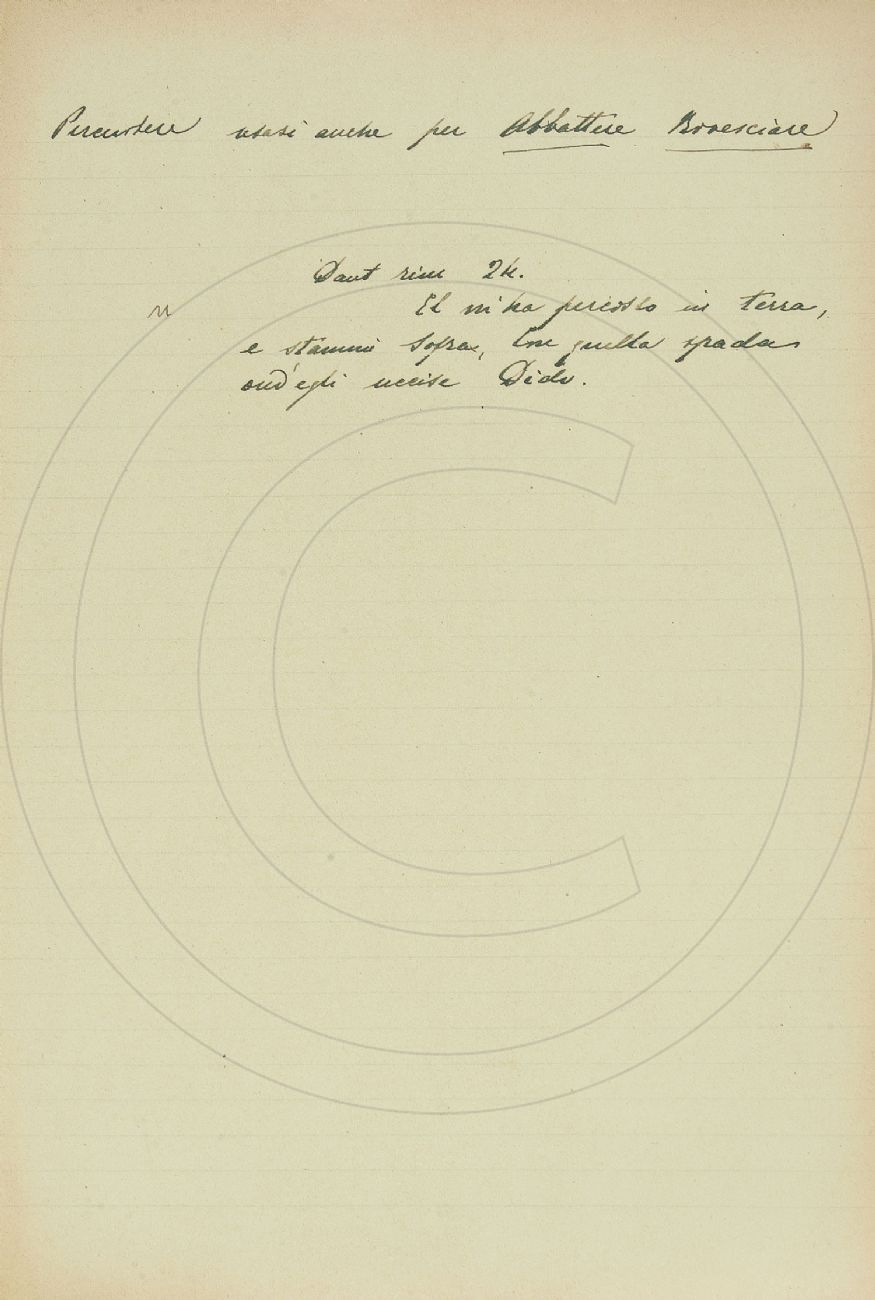 Percuotere usasi anche per Abbattere Rovesciare
Dant rim 24.
El m'ha percosso in terra,
e stammi sopra, Con quella spada
ond'egli uccise Dido.